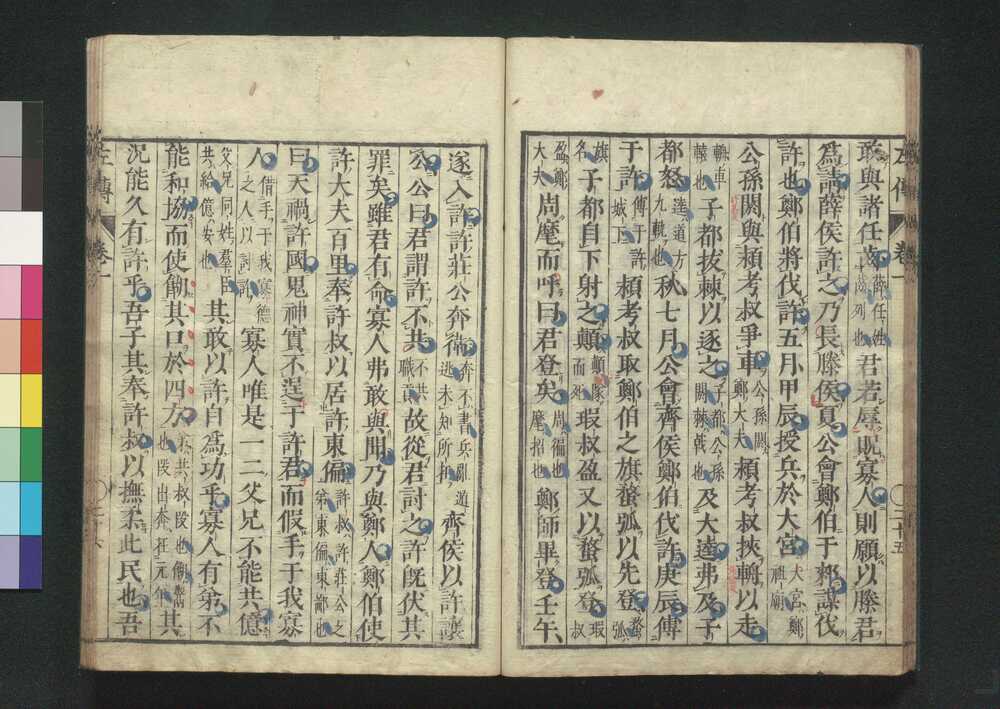 敢與諸任齒薛任姓齒列也君若辱貺寡人則願以滕君
爲請薛侯許之乃長滕侯夏公會鄭伯于郲謀伐
許也鄭伯將伐許五月甲辰授兵於大宮大宮鄭祖廟
公孫閼與潁考叔爭車公孫閼鄭大夫潁考叔挾輈以走
輈車轅也子都拔棘以逐之子都公孫閼棘戟也及大逵弗及子
都怒逵道方九軌也秋七月公會齊侯鄭伯伐許庚辰傅
于許傅于許城下潁考叔取鄭伯之旗蝥弧以先登蝥弧
旗名子都自下射之顚顚隊而死瑕叔盈又以蝥弧登瑕叔
盈鄭大夫周麾而呼曰君登矣周徧也麾招也鄭師畢登壬午
左傳 卷一 二十五
遂入許許莊公奔衞奔不書兵亂遁逃未知所在齊侯以許讓
公公曰君謂許不共不共職貢故從君討之許旣伏其
罪矣雖君有命寡人弗敢與聞乃與鄭人鄭伯使
許大夫百里奉許叔以居許東偏許叔許莊公之弟東偏東鄙也
曰天禍許國鬼神實不逞于許君而假手于我寡
人借手于我寡德之人以討許寡人唯是一二父兄不能共億
父兄同姓羣臣共給億安也其敢以許自爲功乎寡人有弟不
能和協而使餬其口於四方弟共叔段也餬鬻也段出奔在元年其
況能久有許乎吾子其奉許叔以撫柔此民也吾
左傳 卷一